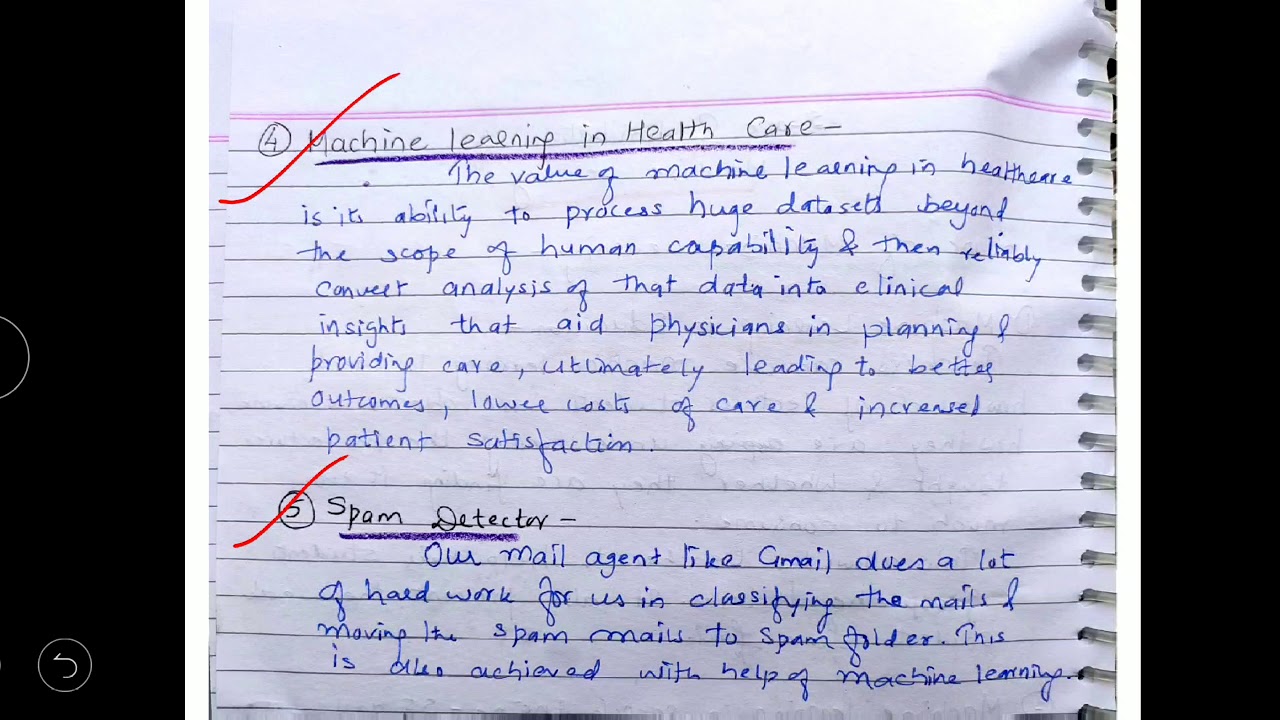 ④ Machine learning in Health Care –
The value of machine learning in healthcare
is its ability to process huge datasets beyond
the scope of human capability & then reliably
convert analysis of that data into clinical
insights that aid physicians in planning &
providing care, ultimately leading to better
outcomes, lower costs of care & increased
patient satisfaction.
⑤ Spam Detector –
Our mail agent like Gmail does a lot
of hard work for us in classifying the mails &
moving the spam mails to spam folder. This
is also achieved with help of machine learning.